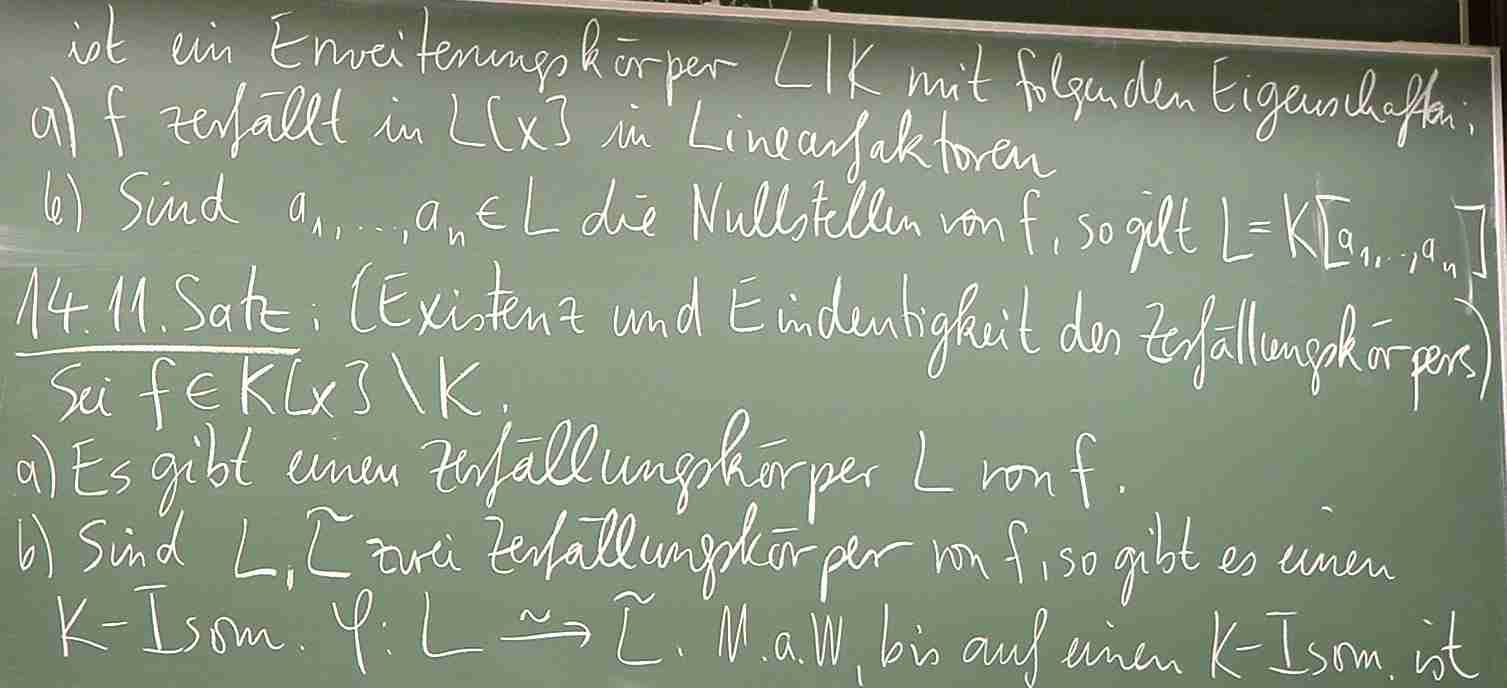 ist ein Erweiterungskörper L|K mit folgenden Eigenschaften:
a) f zerfällt in L[x] in Linearfaktoren
b) Sind a₁,...,aₙ ∈ L die Nullstellen von f, so gilt L=K[a₁,..,aₙ]
14.11. Satz: (Existenz und Eindeutigkeit des Zerfällungskörpers)
Sei f ∈ K[x] \ K.
a) Es gibt einen Zerfällungskörper L von f.
b) Sind L, L̃ zwei Zerfällungskörper von f, so gibt es einen
K-Isom. φ: L ⥲ L̃. M.a.W, bis auf einen K-Isom. ist